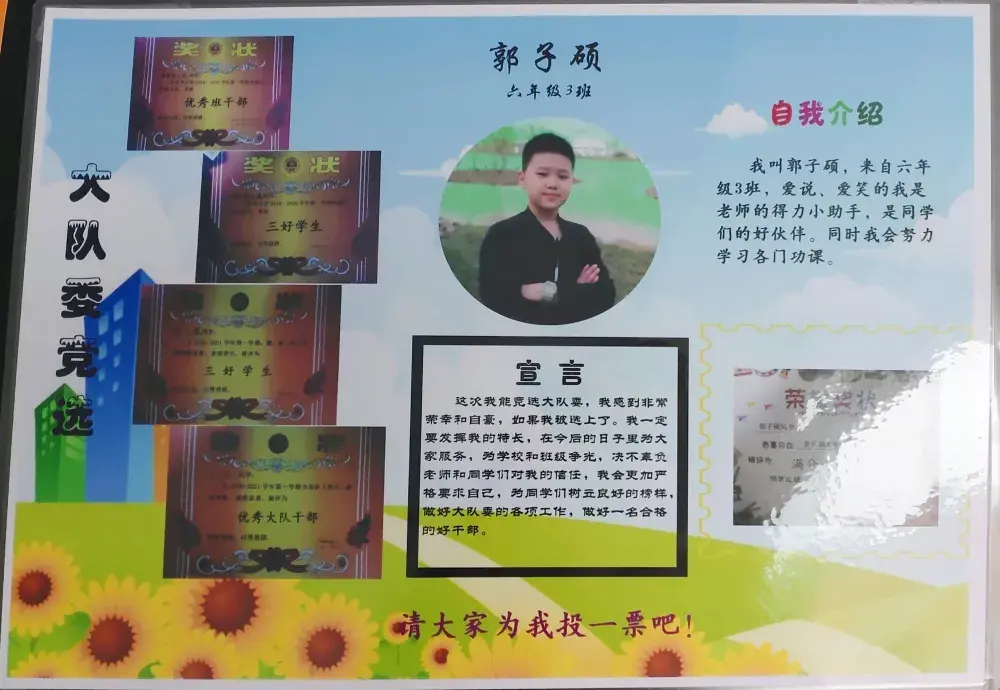 大队委竞选
奖状
优秀班干部
奖状
三好学生
三好学生
优秀大队干部
郭子硕
六年级3班
宣言
这次我能竞选大队委，我感到非常
荣幸和自豪，如果我被选上了。我一定
要发挥我的特长，在今后的日子里为大
家服务，为学校和班级争光，决不辜负
老师和同学们对我的信任，我会更加严
格要求自己，为同学们树立良好的榜样，
做好大队委的各项工作，做好一名合格
的好干部。
自我介绍
我叫郭子硕，来自六年
级3班，爱说、爱笑的我是
老师的得力小助手，是同学
们的好伙伴。同时我会努力
学习各门功课。
请大家为我投一票吧！